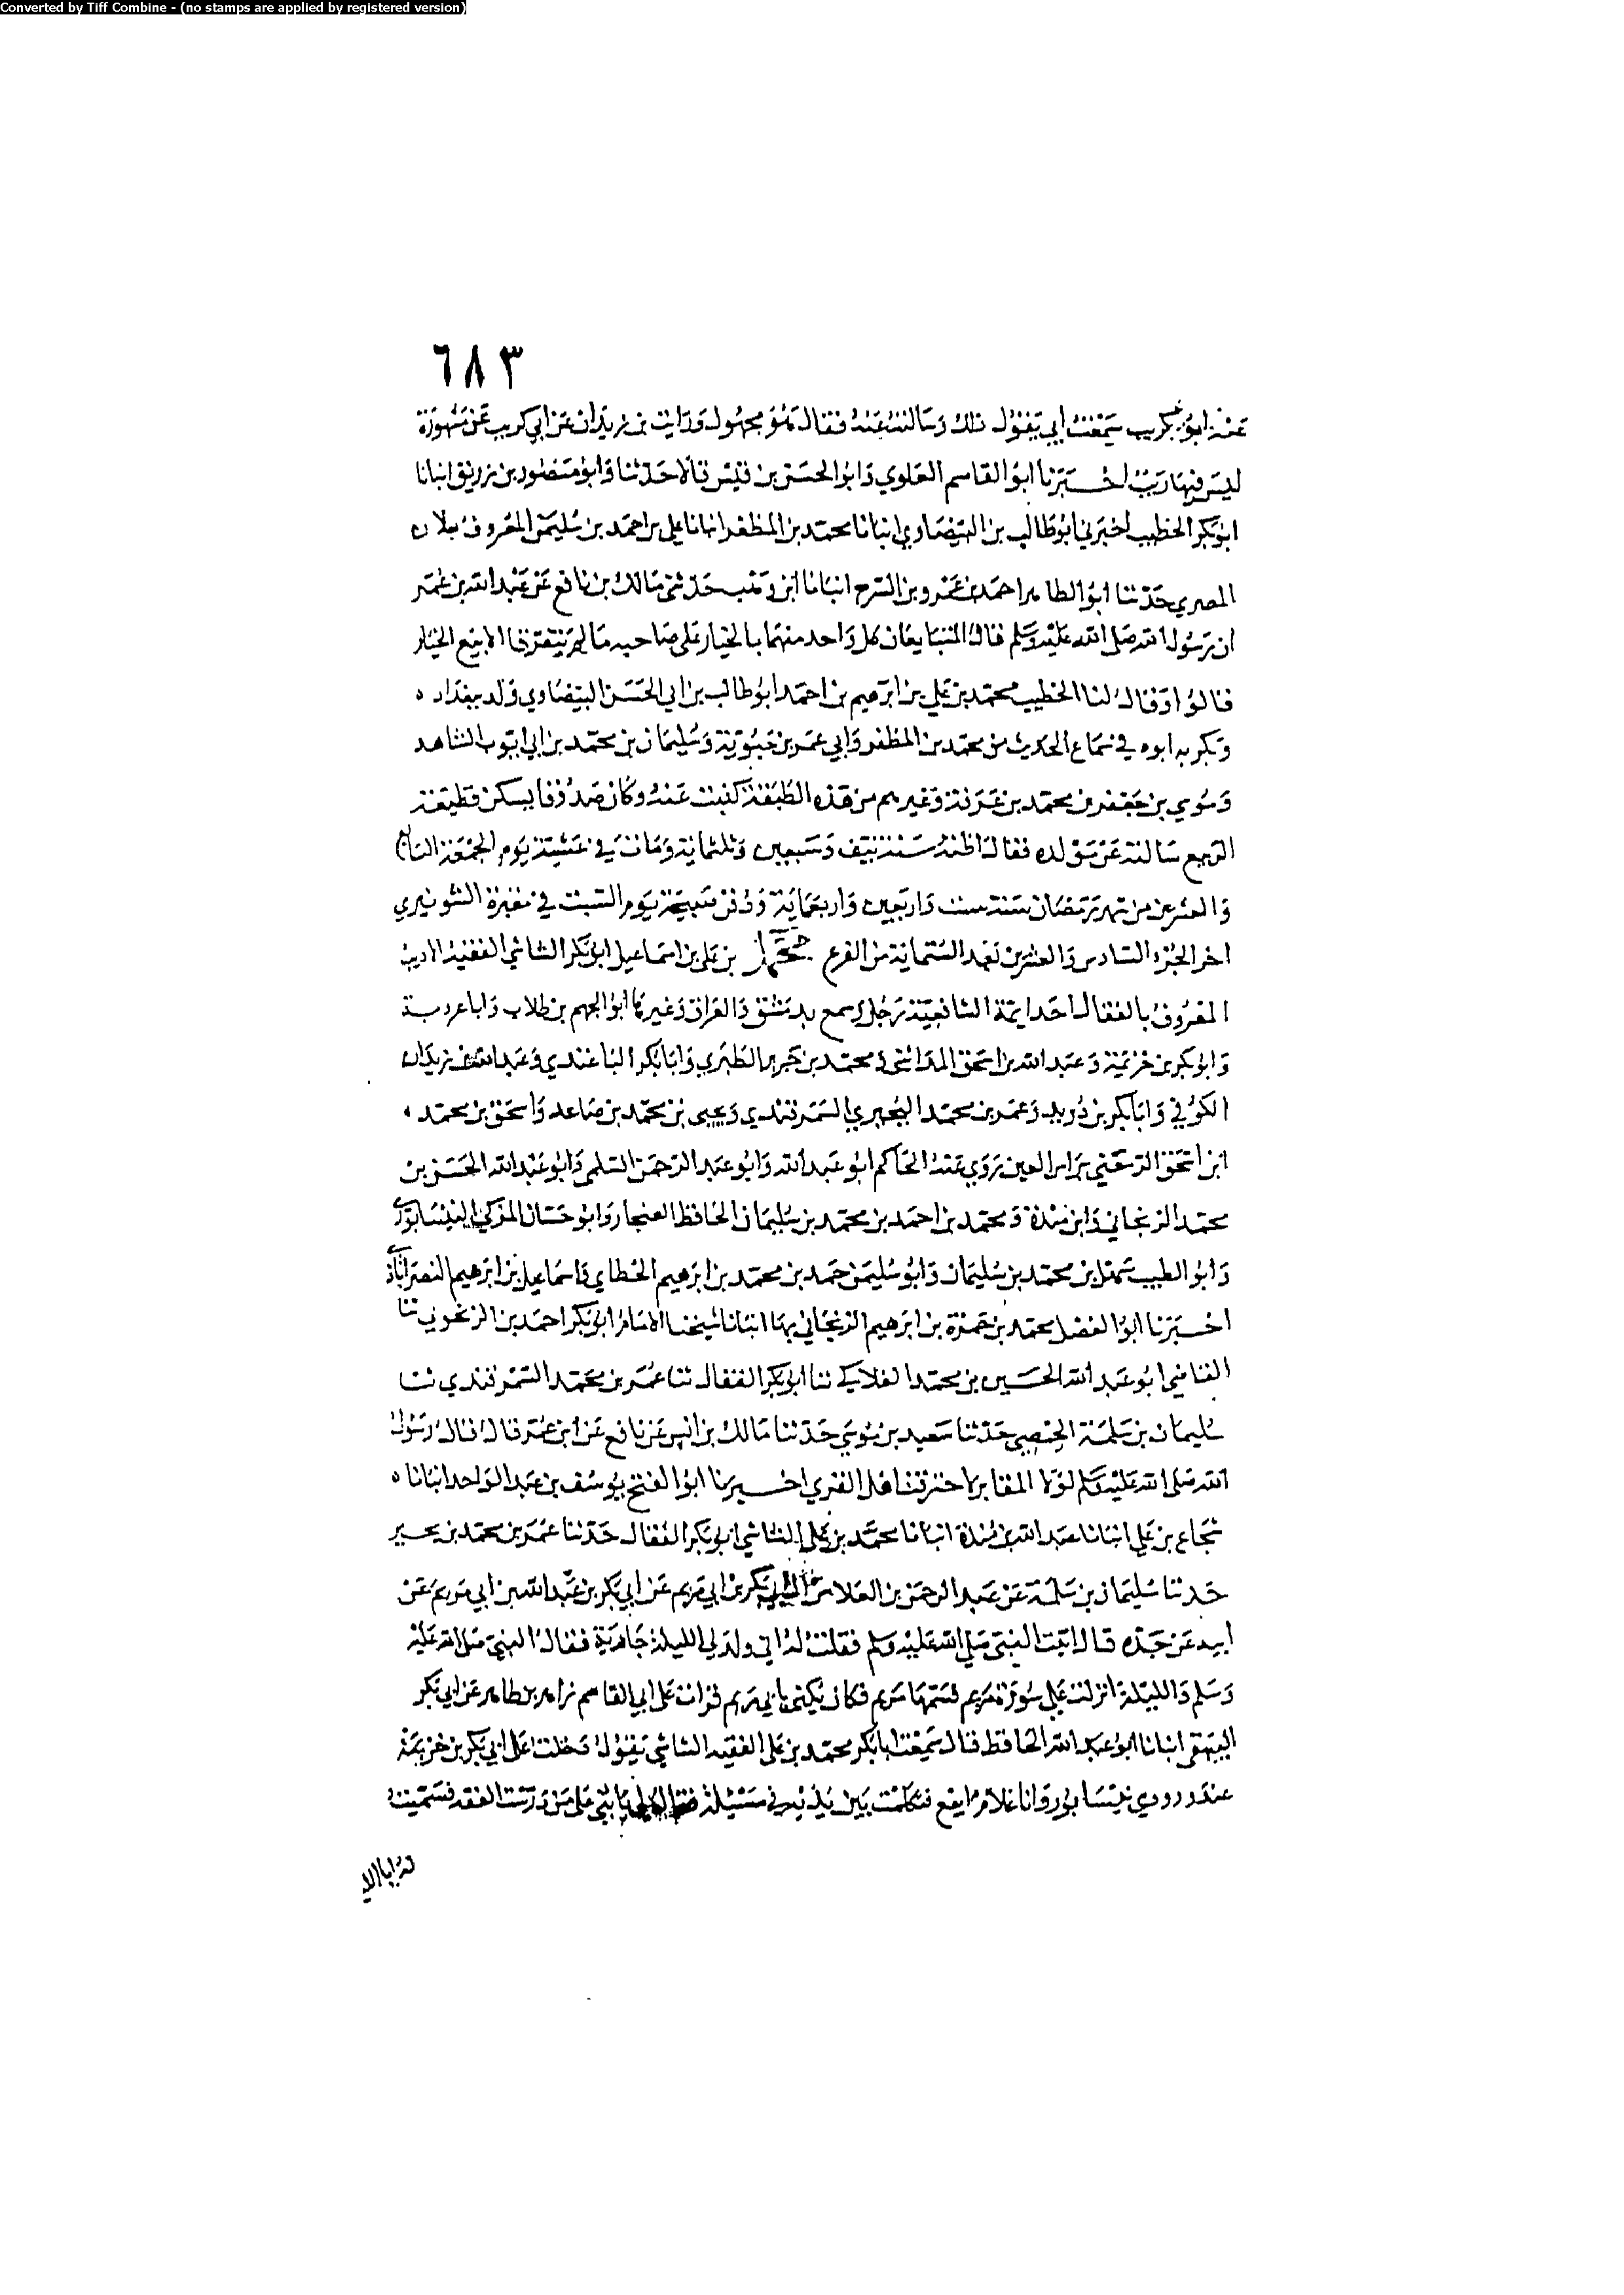 Converted by Tiff Combine - (no stamps are applied by registered version)
٦٨٣
عنه ابو كريب سمعت ابي يقول ذلك وسالته عنه فقال هو مجهول عن ابي كريب عن مشهورة
ليس فيها ريب اخبرنا ابو القاسم العلوي وابو الحسن بن قبيس قالا حدثنا وابو منصور بن زريق انبانا
ابو بكر الخطيب اخبرني ابو طالب بن البيضاوي انبانا محمد بن المظفر انبانا علي بن احمد بن سليمن المعروف بعلان
المصري حدثنا ابو الطاهر احمد بن عمرو بن السرح انبانا ابن وهب حدثني مالك بن نافع عن عبد الله بن عمر
ان رسول الله صلى الله عليه وسلم قال المتبايعان كل واحد منهما بالخيار على صاحبه ما لم يتفرقا الا بيع الخيار
قالوا وقال لنا الخطيب محمد بن علي بن ابرهيم بن احمد ابو طالب بن ابي الحسن البيضاوي ولد ببغداد ه
وبكر به ابوه في سماع الحديث من محمد بن المظفر وابي عمر بن حيوية وسليمان بن محمد بن ابي ايوب الشاهد
وموسي بن جعفر بن محمد بن عرفة وغيرهم من هذه الطبقة كتبت عنه وكان صدوقا يسكن قطيعة
الربيع سالته عن مولده فقال اظنه سنة نيف وسبعين وثلثماية ومات في عشية يوم الجمعة السابع
والعشرين من شهر رمضان سنة ست واربعين واربعماية ودفن صبيحة يوم السبت في مقبرة الشونيزي
اخر الجزء السادس والعشرين بعد الستماية من الفرع محمد بن علي بن اسماعيل ابو بكر الشاشي الفقيه الاديب
المعروف بالقفال احد ايمة الشافعية رحل وسمع بدمشق والعراق وغيرهما ابو الجهم بن طلاب وابا عروبة
وابو بكر بن خزيمة وعبد الله بن اسحق المدائني ومحمد بن جرير الطبري وابا بكر الباغندي وعبد الله بن زيدان
الكوفي وابا بكر بن دريد وعمر بن محمد البجيري السمرقندي ويحيى بن محمد بن صاعد واسحق بن محمد ه
ابن اسحق الرسعني براس العين روي عنه الحاكم ابو عبد الله وابو عبد الرحمن السلمي وابو عبد الله الحسن بن
محمد الزنجاني وابن مندة ومحمد بن احمد بن محمد بن سليمان الحافظ الغنجار وابو حسان المزكي النيسابوري
وابو الطيب سهل بن محمد بن سليمان وابو سليمن حمد بن محمد بن ابرهيم الخطابي واسماعيل بن ابرهيم النصراباذي
اخبرنا ابو الفضل محمد بن حمزة بن ابرهيم الزنجاني بها انبانا شيخنا الامام ابو بكر احمد بن ثنا
القاضي ابو عبد الله الحسين بن محمد الفلاكي ثنا ابو بكر القفال ثنا عمر بن محمد السمرقندي ثنا
سليمان بن سلمة الحمصي حدثنا سعيد بن موسي حدثنا مالك بن انس عن نافع عن ابن عمر قال قال رسول
الله صلى الله عليه وسلم لولا المقابر لاحترقت اهل القري اخبرنا ابو الفتح يوسف بن عبد الواحد انبانا ه
شجاع بن علي انبانا عبد الله بن مندة انبانا محمد بن علي الشاشي ابو بكر القفال حدثنا عمر بن محمد بن بحير
حدثنا سليمان بن سلمة عن عبد الرحمن بن العلا بكر بن ابي مريم عن ابي بكر بن عبد الله بن ابي مريم عن
ابيه عن جده قال اتيت النبي صلى الله عليه وسلم فقلت له اني ولد لي الليلة جارية فقال النبي صلى الله عليه
وسلم والليلة انزلت علي سورة مريم فسمها مريم فكان يكنى بابي مريم قرات على ابي القاسم زاهر بن طاهر عن ابي بكر
البيهقي انبانا ابو عبد الله الحافظ قال سمعت ابا بكر محمد بن علي الفقيه الشاشي يقول دخلت على ابي بكر بن خزيمة
عند ورودي نيسابور وانا غلام ايفع فتكلمت بين يديه في مسئلة فقال لي يا بني على من درست الفقه فسميت